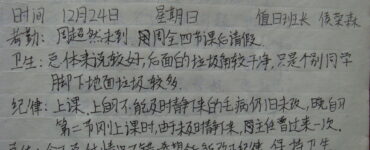 时间 12月24日 星期日 值日班长 侯荣森
考勤：周超然未到，周周全四节课后请假。
卫生：总体来说较好，后面的垃圾角较干净，只是个别同学
脚下地面垃圾较多。
纪律：上课，上自习不能及时静下来的毛病仍旧未改，晚自习
第二节刚上课时，由于未及时静下来，周主任曾过来一次。